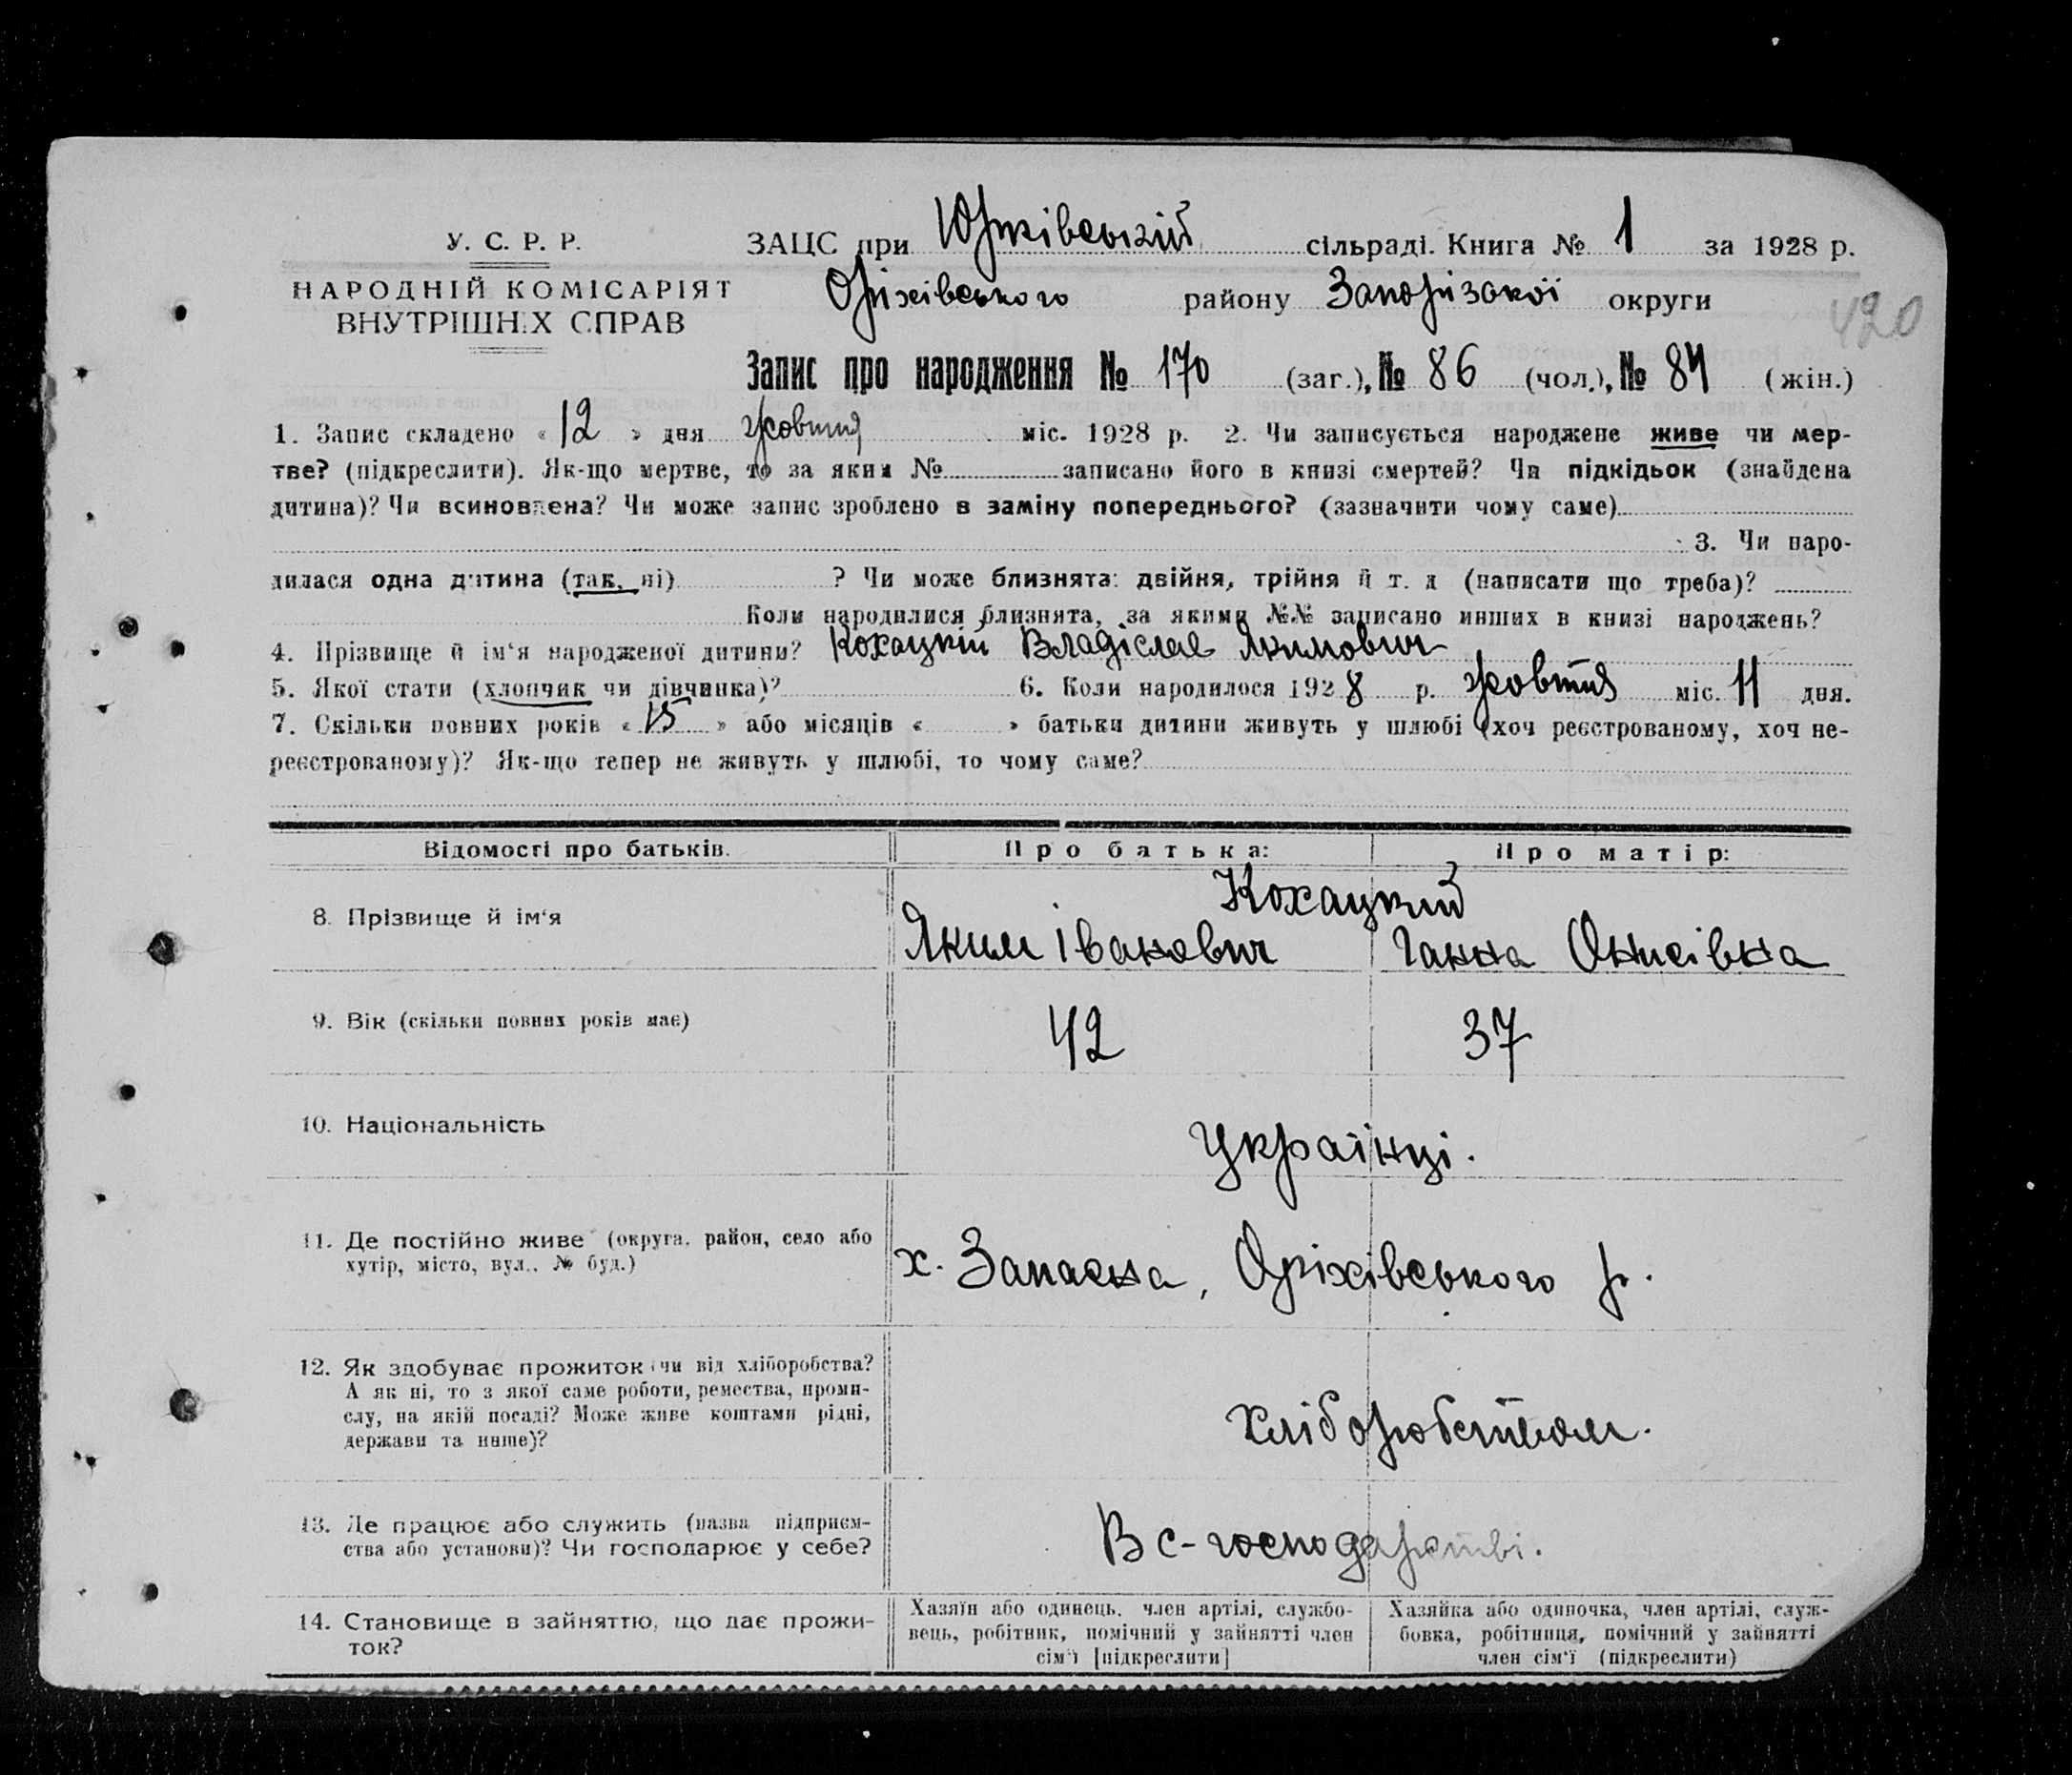 У. С. Р. Р.
НАРОДНІЙ КОМІСАРІЯТ
ВНУТРІШНІХ СПРАВ
ЗАЦС при Юрківській сільраді. Книга № 1 за 1928 р.
Оріхівського району Запорізької округи
420
Запис про народження № 170 (заг.), № 86 (чол.), № 84 (жін.)
1. Запис складено « 12 » дня жовтня міс. 1928 р. 2. Чи записується народжене живе чи мер-
тве? (підкреслити). Як-що мертве, то за яким № записано його в книзі смертей? Чи підкідьок (знайдена
дитина)? Чи всиновлена? Чи може запис зроблено в заміну попереднього? (зазначити чому саме)
3. Чи наро-
дилася одна дитина (так, ні) ? Чи може близнята: двійня, трійня й т. д (написати що треба)?
Коли народилися близнята, за якими №№ записано инших в книзі народжень?
4. Прізвище й ім'я народженої дитини? Кохацкій Владіслав Якимович
5. Якої стати (хлопчик чи дівчинка)? 6. Коли народилося 1928 р. жовтня міс. 11 дня.
7. Скільки повних років « 15 » або місяців « » батьки дитини живуть у шлюбі (хоч реєстрованому, хоч не-
реєстрованому)? Як-що тепер не живуть у шлюбі, то чому саме?
Відомості про батьків. Про батька: Про матір:
8. Прізвище й ім'я
Кохацкий
Яким Іванович Ганна Онисівна
9. Вік (скільки повних років має) 42 37
10. Національність українці.
11. Де постійно живе (округа, район, село або
хутір, місто, вул., № буд.)
х. Запасна, Оріхівського р.
12. Як здобуває прожиток (чи від хліборобства?
А як ні, то з якої саме роботи, ремества, проми-
слу, на якій посаді? Може живе коштами рідні,
держави та инше)?
Хліборобством.
13. Де працює або служить (назва підприєм-
ства або установи)? Чи господарює у себе?
В с-господарстві.
14. Становище в зайняттю, що дає прожи-
ток?
Хазяїн або одинець, член артілі, службо-
вець, робітник, помічний у зайнятті член
сім'ї [підкреслити]
Хазяйка або одиночка, член артілі, служ-
бовка, робітниця, помічний у зайнятті
член сім'ї (підкреслити)